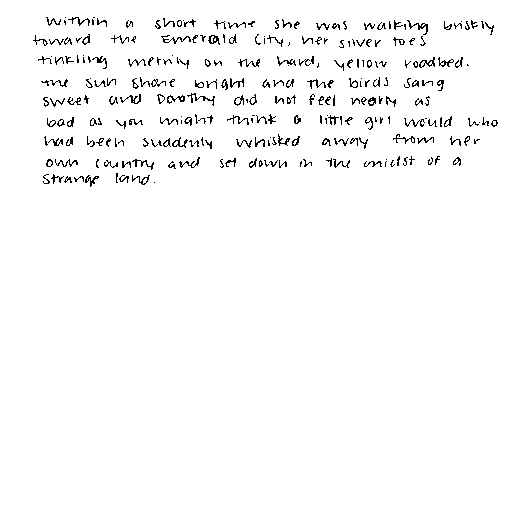 Within a short time she was walking briskly
toward the Emerald City, her silver toes
tinkling merrily on the hard, yellow roadbed.
The sun shone bright and the birds sang
sweet and Dorothy did not feel nearly as
bad as you might think a little girl would who
had been suddenly whisked away from her
own country and set down in the midst of a
strange land.